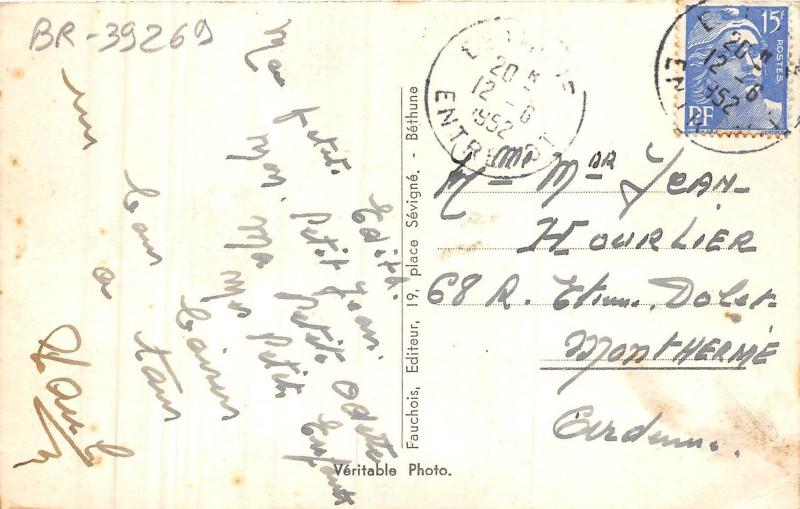 BR-39269
Ma petite Edith.
Mon Petit Jean.
Ma Petite Odette
Mes Petits Enfants
un bon baiser
a tous
Fauchois, Editeur, 19, place Sévigné. - Béthune
Véritable Photo.
20 H
12 - 6
1952
ENTREPOT
15F
POSTES
RF
20 H
12 - 6
1952
Mme Mr JEAN-
HOURLIER
68 R. Etienne Dolet.
MONTHERMÉ
Ardennes.